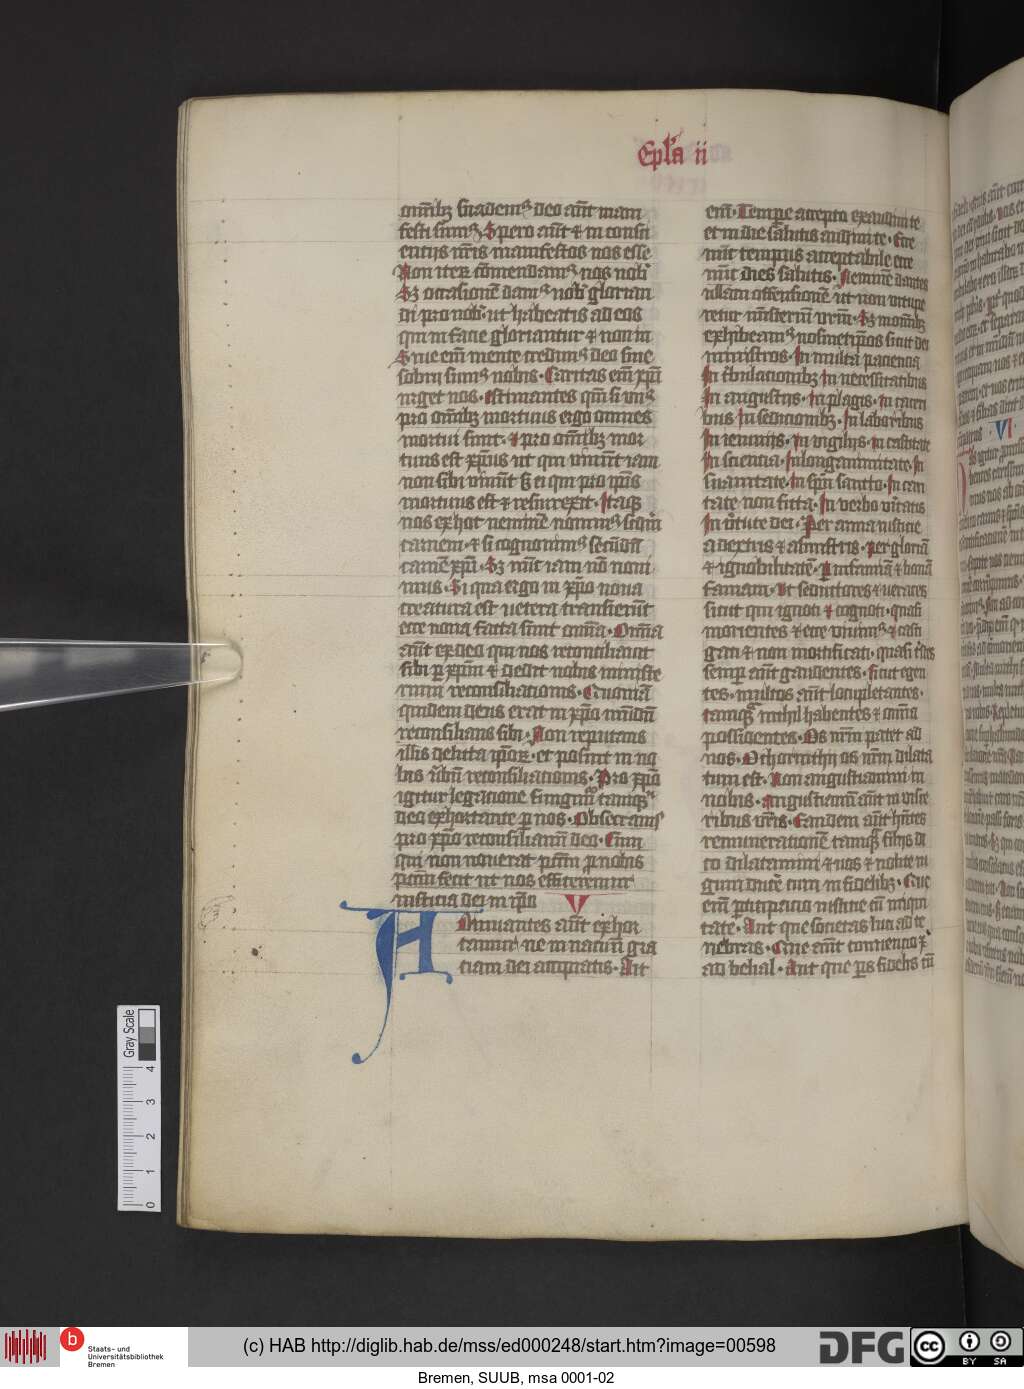 Epl'a ii
omībꝫ suademꝰ deo aūt mani
festi sumꝰ Spero aūt ⁊ in consci
encijs nr̄is manifestos nos esse
Non iteꝝ cōmendamꝰ nos nob̄
Sꝫ occasionē damꝰ nob̄ glorian
di pro nob̄ · ut habeatis ad eos
qui in facie gloriantur ⁊ non in
Siue em̄ mente credimꝰ deo siue
sobrii sumꝰ nobis · Caritas em̄ xp̄i
urget nos · estimantes qm̄ si vnꝰ
pro omībꝫ mortuus ergo omnes
mortui sunt · ⁊ pro omībꝫ mor
tuus est xp̄us ut qui viuūt iam
non sibi viuūt sꝫ ei qui pro ip̄is
mortuus est ⁊ resurexit · Itaqꝫ
nos ex hoc neminē nouimꝰ
tamem · ⁊ si cognouimꝰ secūdū
carnē xp̄i · Sꝫ nūc iam nō noui
mus · Si qua ergo in xp̄o noua
creatura est uetera transierūt
ecce noua facta sunt omīa · Omīa
aūt ex deo qui nos reconsiliauit
sibi p xp̄m ⁊ dedit nobis ministe
rium reconsiliationis · Quoniā
quidem deus erat in xp̄o mūdū
reconsilians sibi · Non reputans
illis delicta ip̄oꝝ · et posuit in no
bis v̄bū reconsiliationis · Pro xp̄o
igitur legacione fungimꝰ tamqꝫ
deo exhortante p nos · Obsecramꝰ
pro xp̄o reconsiliamī deo · Eum
qui non nouerat pctm̄ p nobis
pctm̄ fecit ut nos efficeremur
iusticia dei in ip̄o V
Adiuuantes aūt exhor
tamur ne in uacuū gra
tiam dei accipiatis · Ait
em̄ · Tempore accepto exaudiui te
et in die salutis audiuui te · Ecce
nūc tempus acceptabile ecce
nūc dies salutis · Neminē dantes
ullam offensionē ut non vitupe
retur ministeriū nr̄m · Sꝫ in omībꝫ
exhibeamꝰ nosmetip̄os sicut dei
ministros · In multa paciencia
In tribulacionibꝫ In necessitatibus
In angustijs · In plagis · In carceri
bus In sedicionibꝫ · In laboribus
In ieiunijs · In vigilijs · in castitate
In sciencia · In longanimitate · In
suauitate · In sp̄u sancto · In cari
tate non ficta · In verbo v̄itatis
In v̄tute dei · Per arma iusticie
a dextris ⁊ a sinistris · Per gloriā
⁊ ignobilitatē · P infamiā ⁊ bonā
famam · Ut seductores ⁊ ueraces
sicut qui ignoti ⁊ cogniti · quasi
morientes ⁊ ecce viuimꝰ ⁊ casti
gati ⁊ non mortificati · quasi tristes
semp aūt gaudentes · sicut egen
tes · multos aūt locupletantes ·
tamqꝫ nichil habentes ⁊ omīa
possidentes · Os nr̄m patet ad
uos · O chorinthij os nr̄m dilata
tum est · Non angustiamini in
nobis · Angustiamī aūt in visce
ribus vr̄is · Eandem aūt hn̄tes
remuneracionē tamqꝫ filijs di
co dilatamini ⁊ uos ⁊ nolite iu
gum ducere cum infidelibꝫ · Que
em̄ participacio iusticie cū iniqui
tate · Aut que societas luci ad te
nebras · Que aūt conuencio xp̄i
ad belial · Aut que ps fidelis cū
VI
Gray Scale
4
3
2
1
0
b Staats- und
Universitätsbibliothek
Bremen
(c) HAB http://diglib.hab.de/mss/ed000248/start.htm?image=00598
DFG
cc BY SA
Bremen, SUUB, msa 0001-02